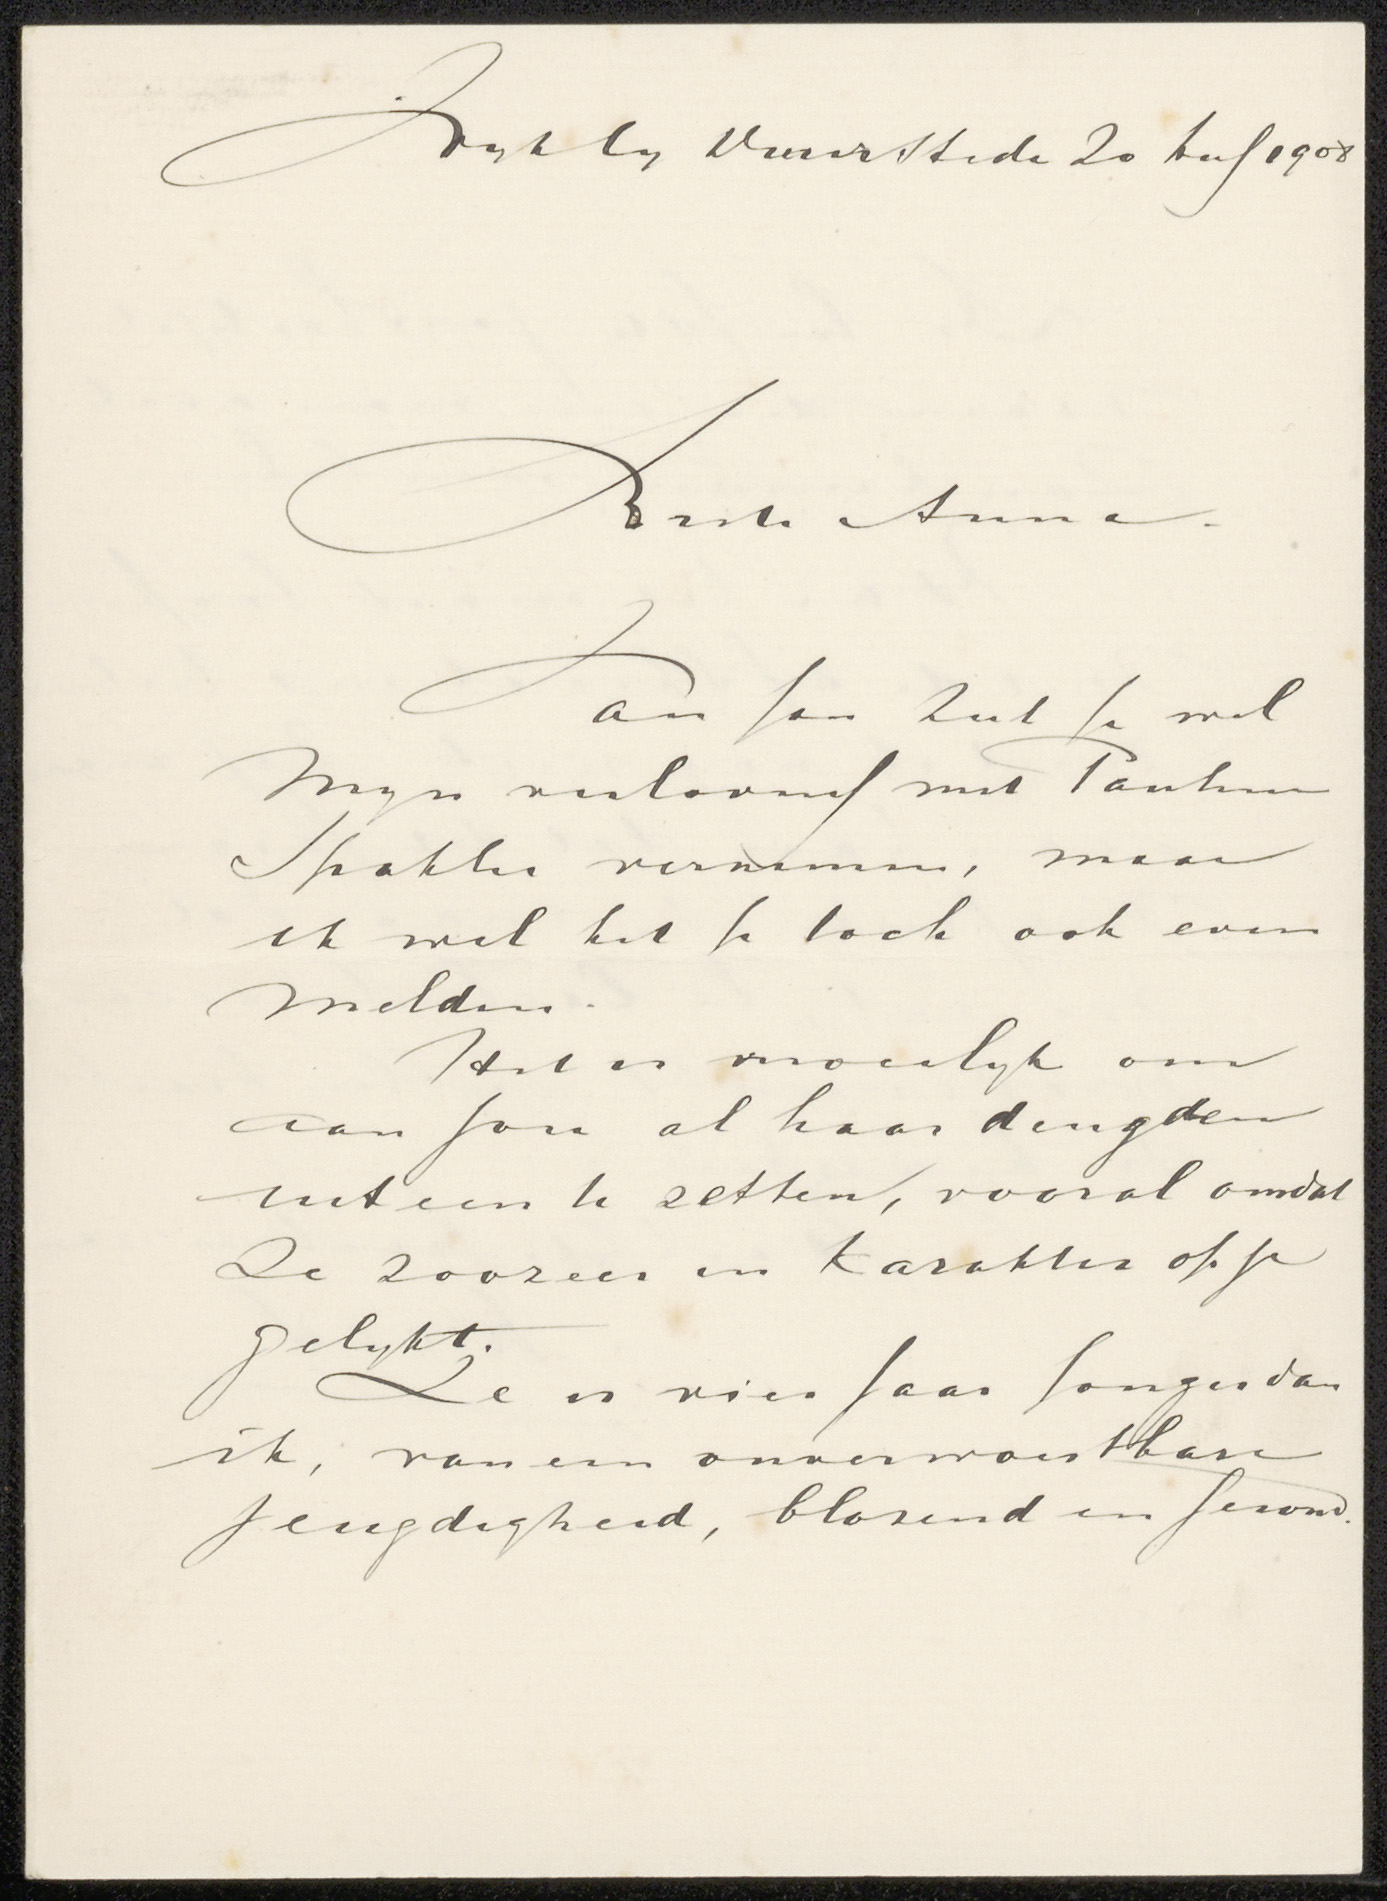 Wyk by Duurstede 20 Aug 1908
Beste Anna.
Van Jan zult je wel
Myn verloving met Pauline
Spakler vernemen, maar
ik wil het je toch ook even
melden.
Het is moeielyk om
aan jou al haar deugden
uiteen te zetten, vooral omdat
Ze zoozeer in Karakter op je
gelykt.
Ze is vier jaar jonger dan
ik, van een onverwoestbare
jeugdigheid, blozend en gezond.